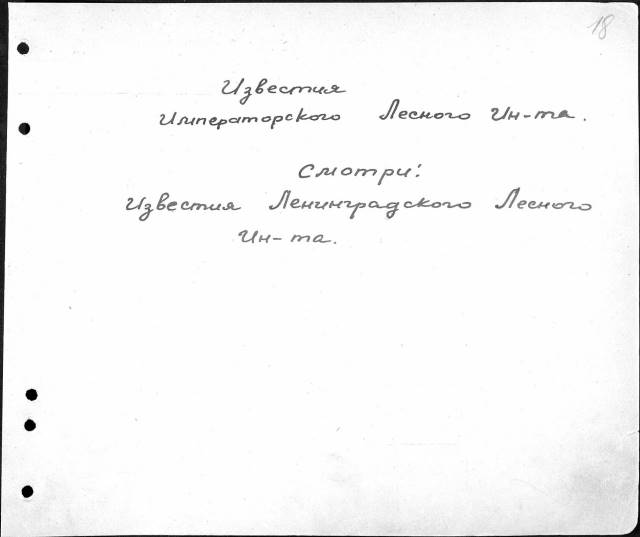 18
Известия
Императорского Лесного Ин-та.
Смотри:
Известия Ленинградского Лесного
Ин-та.